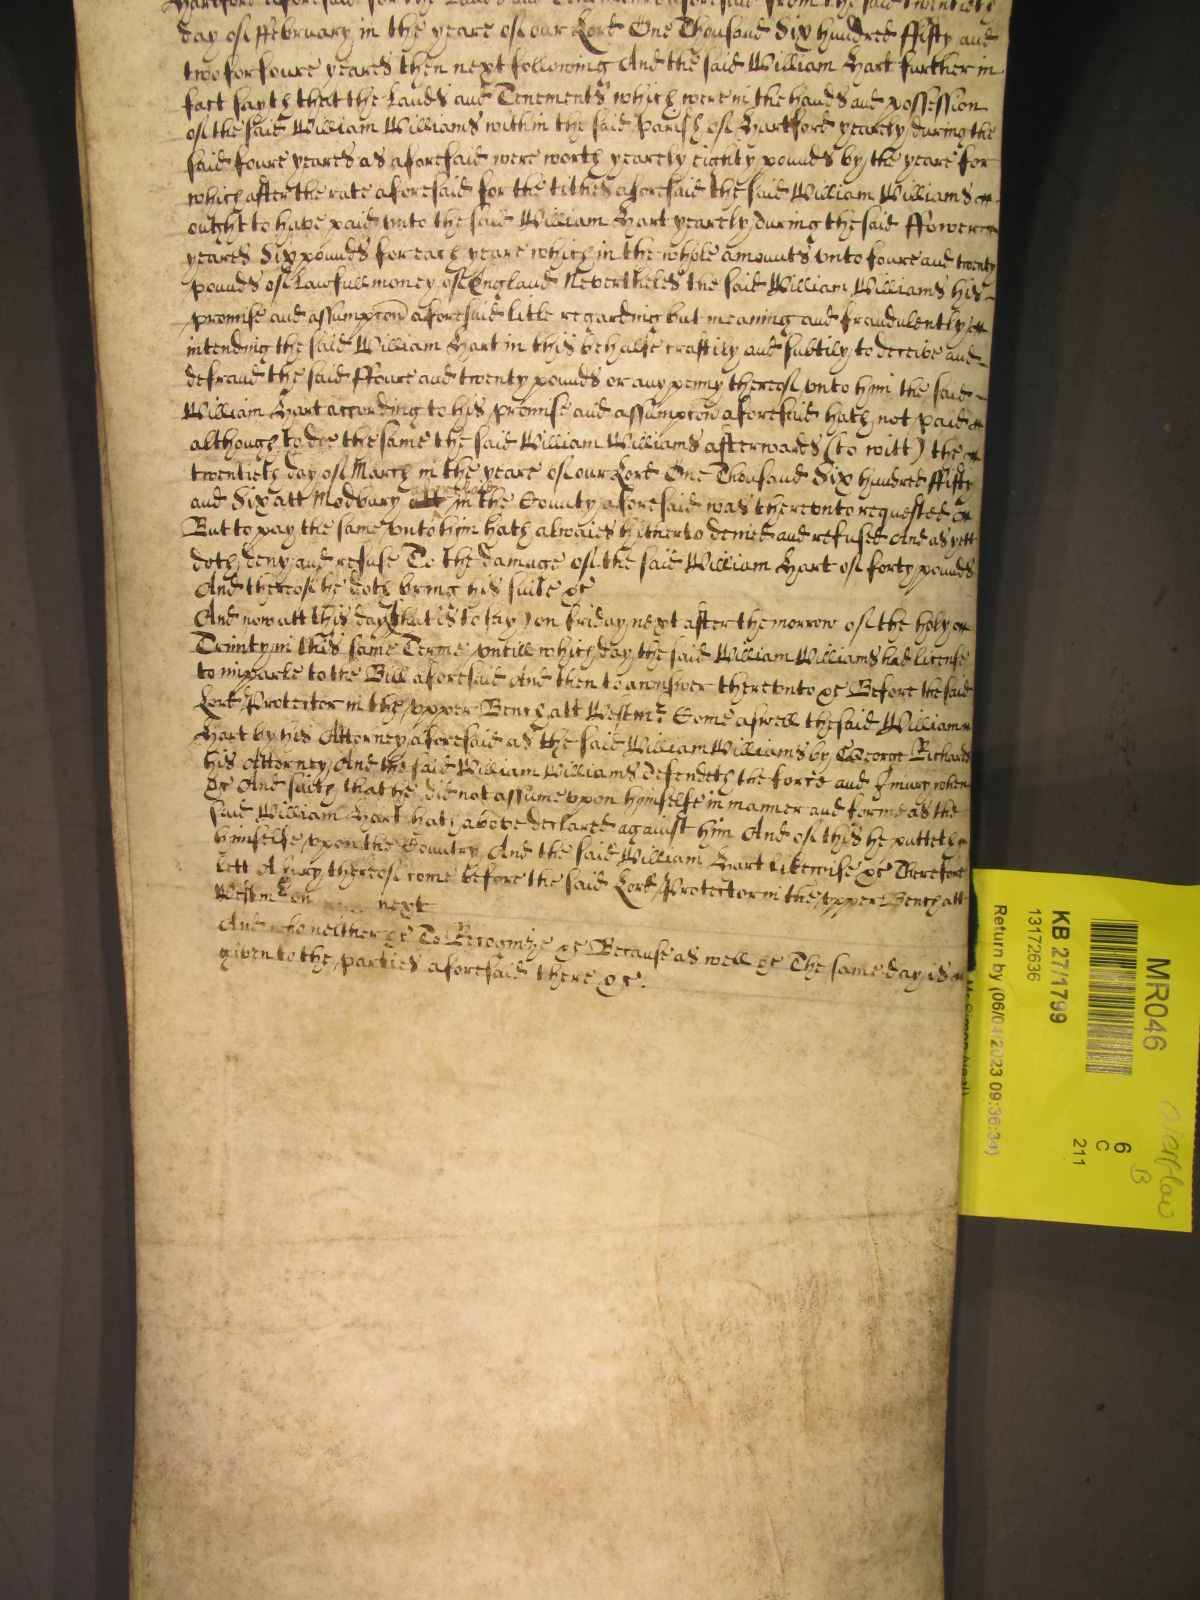 Hartford aforesaid for the Lands and Tenements aforesaid from the said twentieth
day of ffebruary in the yeare of our Lord One Thousand Six hundred ffifty and
two for foure yeares then next following And the said William Hart further in
fact sayth that the Lands and Tenements which were in the hands and possession
of the said William Williams within the said Parish of Hartford yearely during the
said foure yeares as aforesaid were worth yearely eighty pounds by the yeare for
which after the rate aforesaid for the tithes aforesaid the said William Williams
ought to have paid unto the said William Hart yearely during the said ffower
yeares Six pounds for each yeare which in the whole amounts unto foure and twenty
pounds of Lawfull money of England Nevertheles the said William Williams his
promise and assumpcon aforesaid litle regarding but meaning and fraudulently
intending the said William Hart in this behalfe craftily and subtily to deceive and
defraud the said ffoure and twenty pounds or any penny thereof unto him the said
William Hart according to his promise and assumpcon aforesaid hath not paid
although to doe the same the said William Williams afterwards (to witt) the
twentieth day of March in the yeare of our Lord One Thousand Six hundred ffifty
and Six att Modbury aforesaid in the County aforesaid was thereunto requested
But to pay the same unto him hath alwaies hitherto denied and refused And as yett
doth deny and refuse To the damage of the said William Hart of forty pounds
And thereof he doth bring his suite &c
And now att this day (that is to say) on Friday next after the morrow of the holy
Trinity in this same Terme untill which day the said William Williams had license
to imparle to the Bill aforesaid And then to answer thereunto &c Before the said
Lord Protector in the upper Bench att Westmr Come aswell the said William
Hart by his Attorney aforesaid as the said William Williams by George Richards
his Attorney And the said William Williams defendeth the force and Injury when
&c And saith that he did not assume upon himselfe in manner and forme as the
said William Hart hath above declared against him And of this he putteth
himselfe upon the Country And the said William Hart likewise &c Therefore
Lett A Jury thereof come before the said Lord Protector in the upper Bench att
Westmr on next
And who neither &c To Recognize &c Because as well &c The same day is
given to the parties aforesaid there &c.
MR046
KB 27/1799
13172636
Return by (06/04/2023 09:36:34)
6
C
211
Overflow
B
Mr Simon Neal